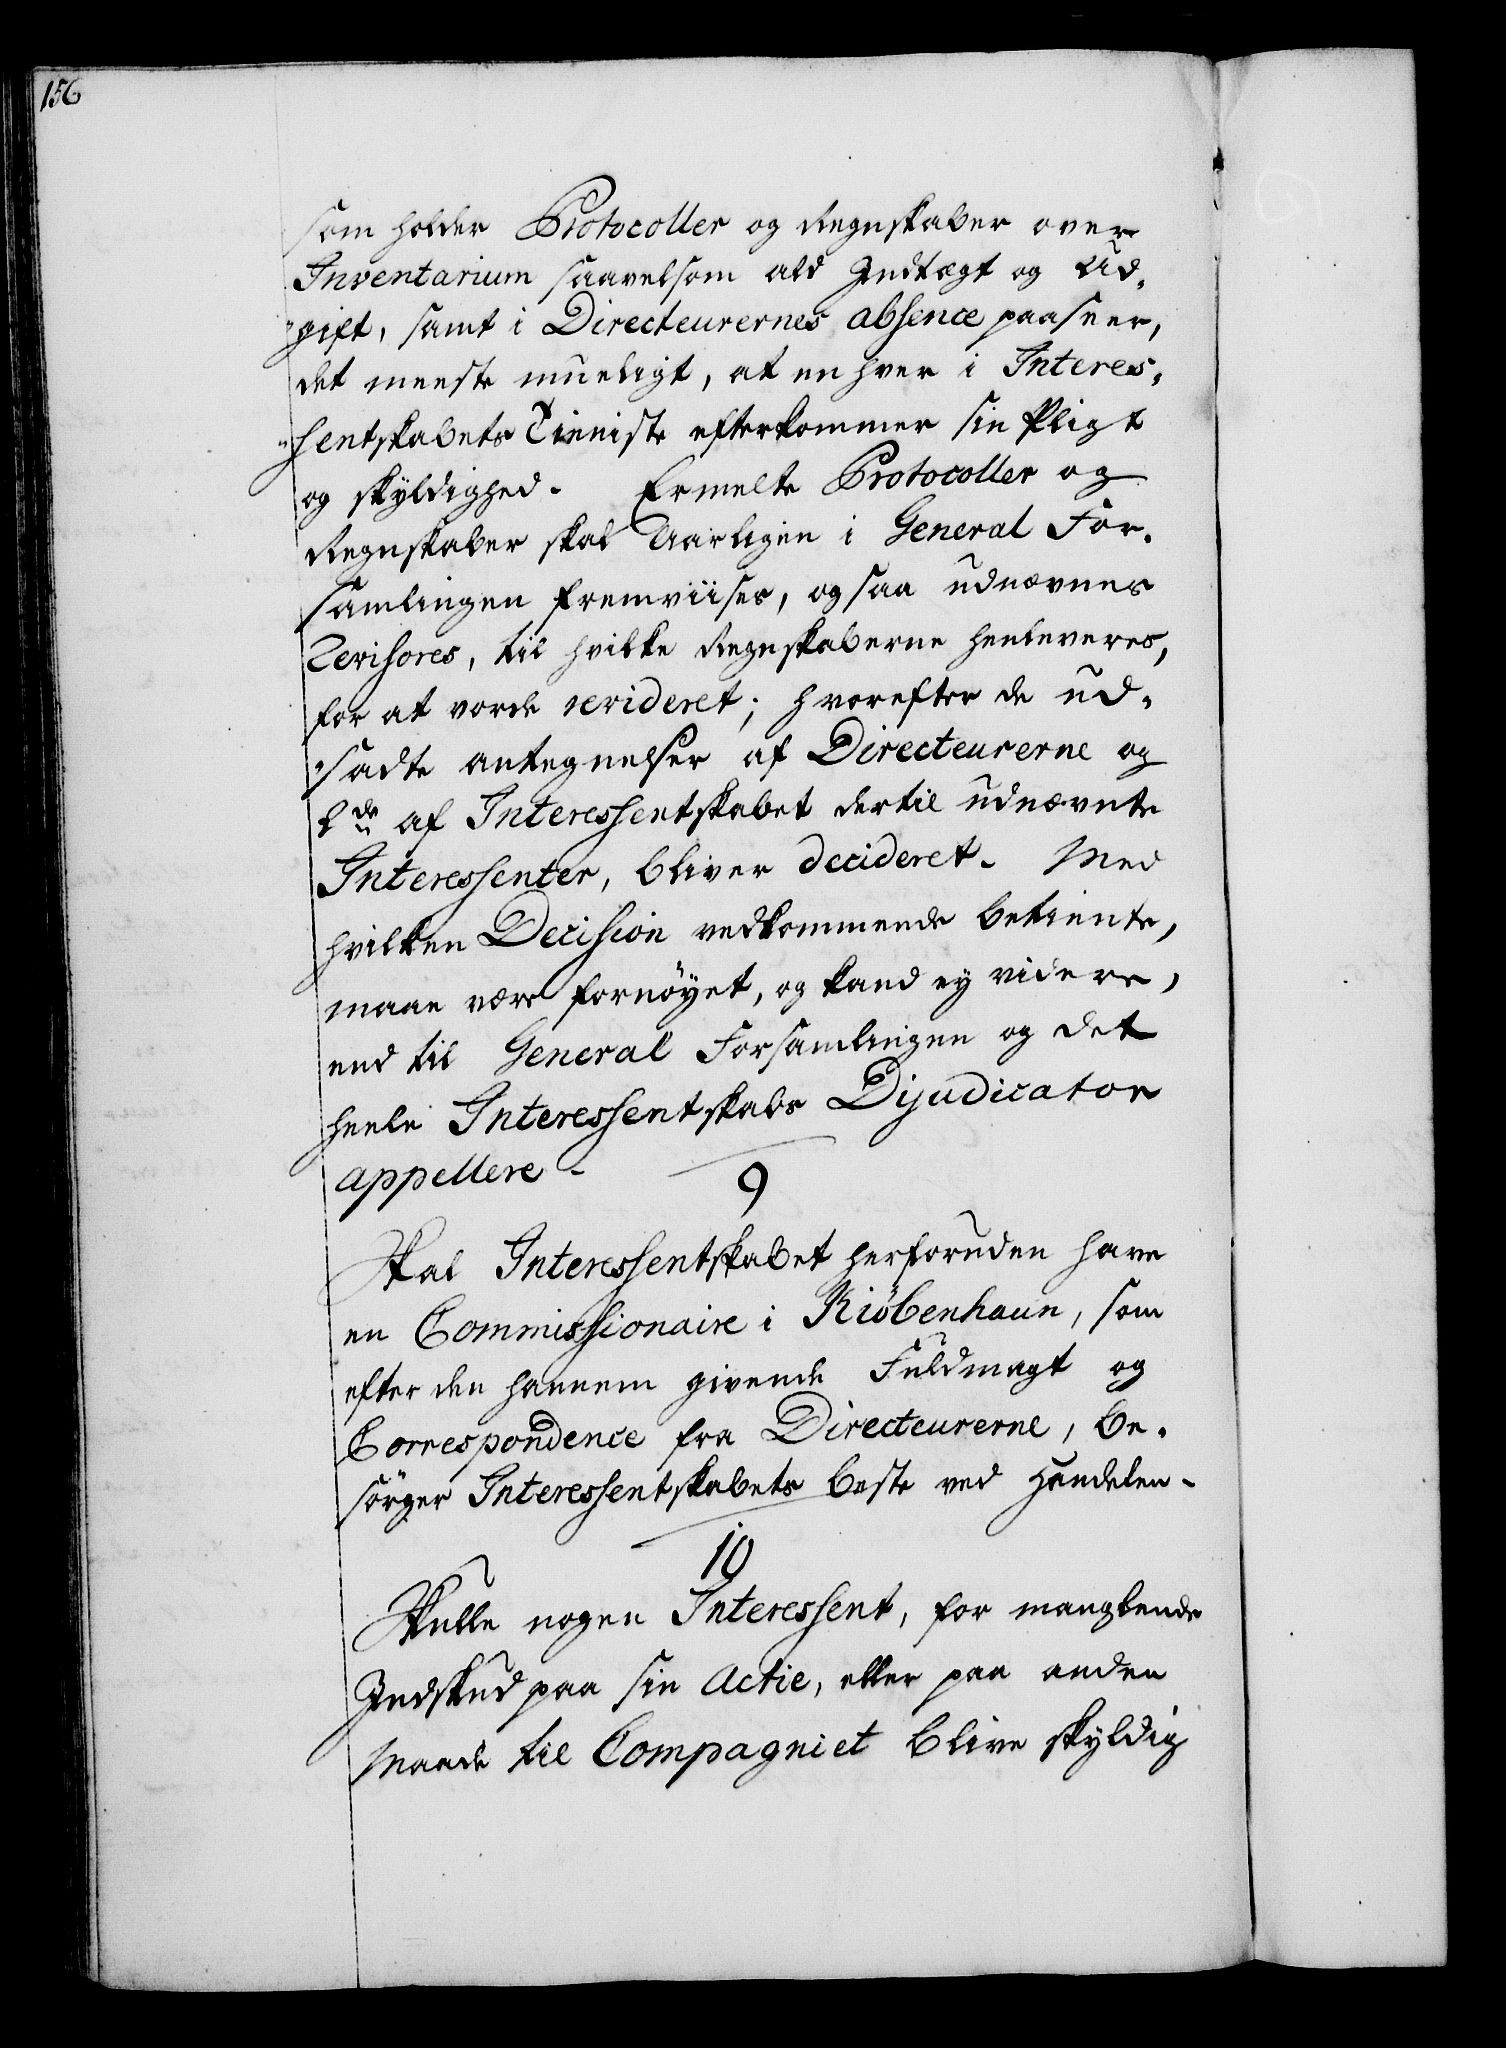 156
som holder Protocoller og Regnskaber over
Inventarium saavelsom ald Indtægt og Ud-
gift, samt i Directeurernes absence paaseer,
det meeste mueligt, at en hver i Interes-
sentskabets Tieniste efterkommer sin Pligt
og skyldighed. Ermelte Protocoller og
Regnskaber skal Aarligen i General For-
samlingen fremviises, og saa udnævnes
Revisores, til hvilke Regnskaberne heeleveres,
for at vorde revideret; hvorefter de ud-
sadte antegnelser af Directeurerne og
2de af Interessentskabet dertil udnævnte
Interessenter, bliver decideret. Med
hvilken Decision vedkommende betiente,
maae være fornöyet, og kand ey videre,
end til General Forsamlingen og det
heele Interessentskabs Dijudication
appellere.
9
Skal Interessentskabet herforuden have
en Commissionaire i Kiöbenhaun, som
efter den hannem givende Fuldmagt og
Correspondence fra Directeurerne, be-
sörger Interessentskabets beste ved Handelen.
10
Skulle nogen Interessent, for manglende
Indskud paa sin Actie, eller paa anden
Maade til Compagniet blive skyldig